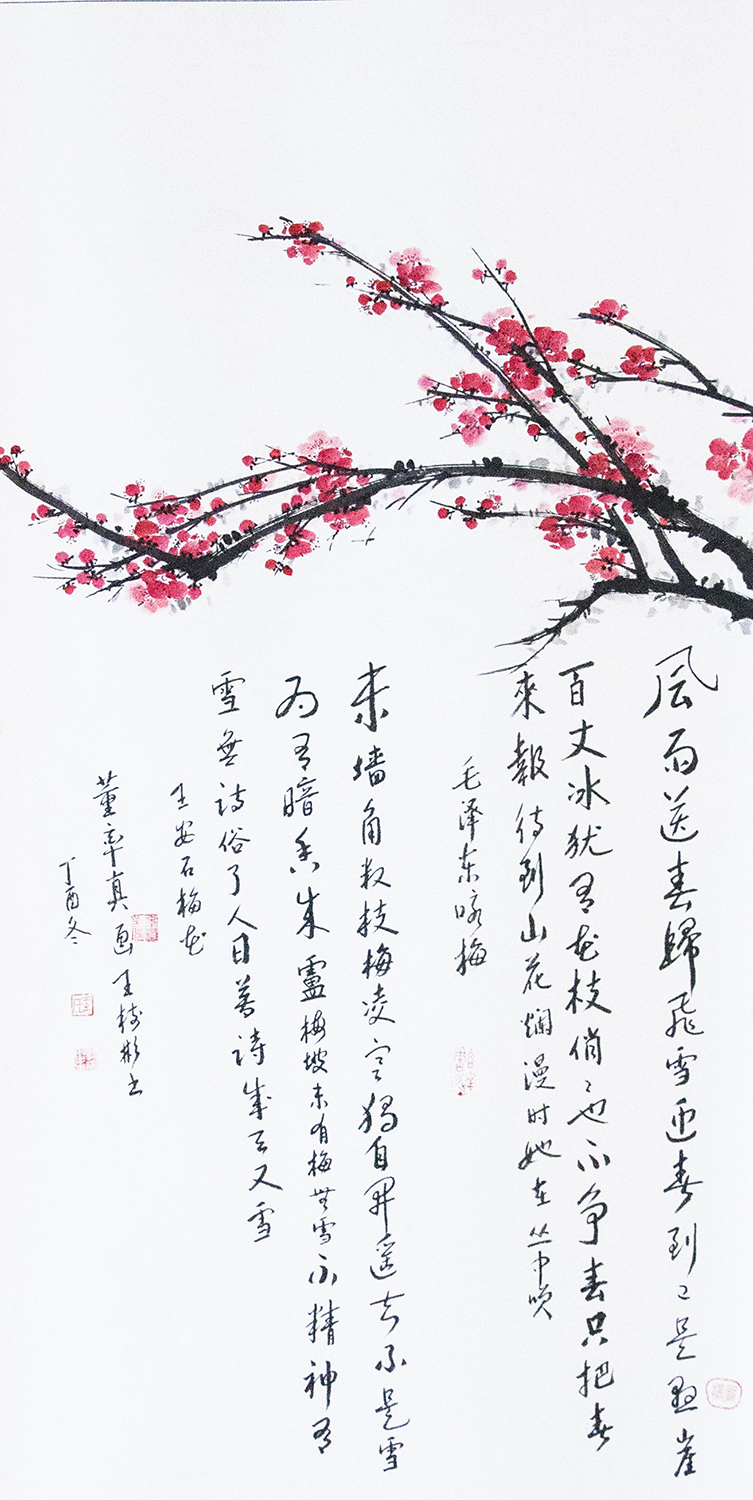 风雨送春歸飛雪迎春到已是悬崖
百丈冰犹有花枝俏ミ也不争春只把春
來報待到山花爛漫时她在丛中咲
毛泽东咏梅
墙角数枝梅凌寒独自開遥知不是雪
为有暗香来盧梅坡未有梅無雪不精神有
雪無詩俗了人日暮詩成天又雪
王安石梅花
董率真画王樹彬书
丁酉冬